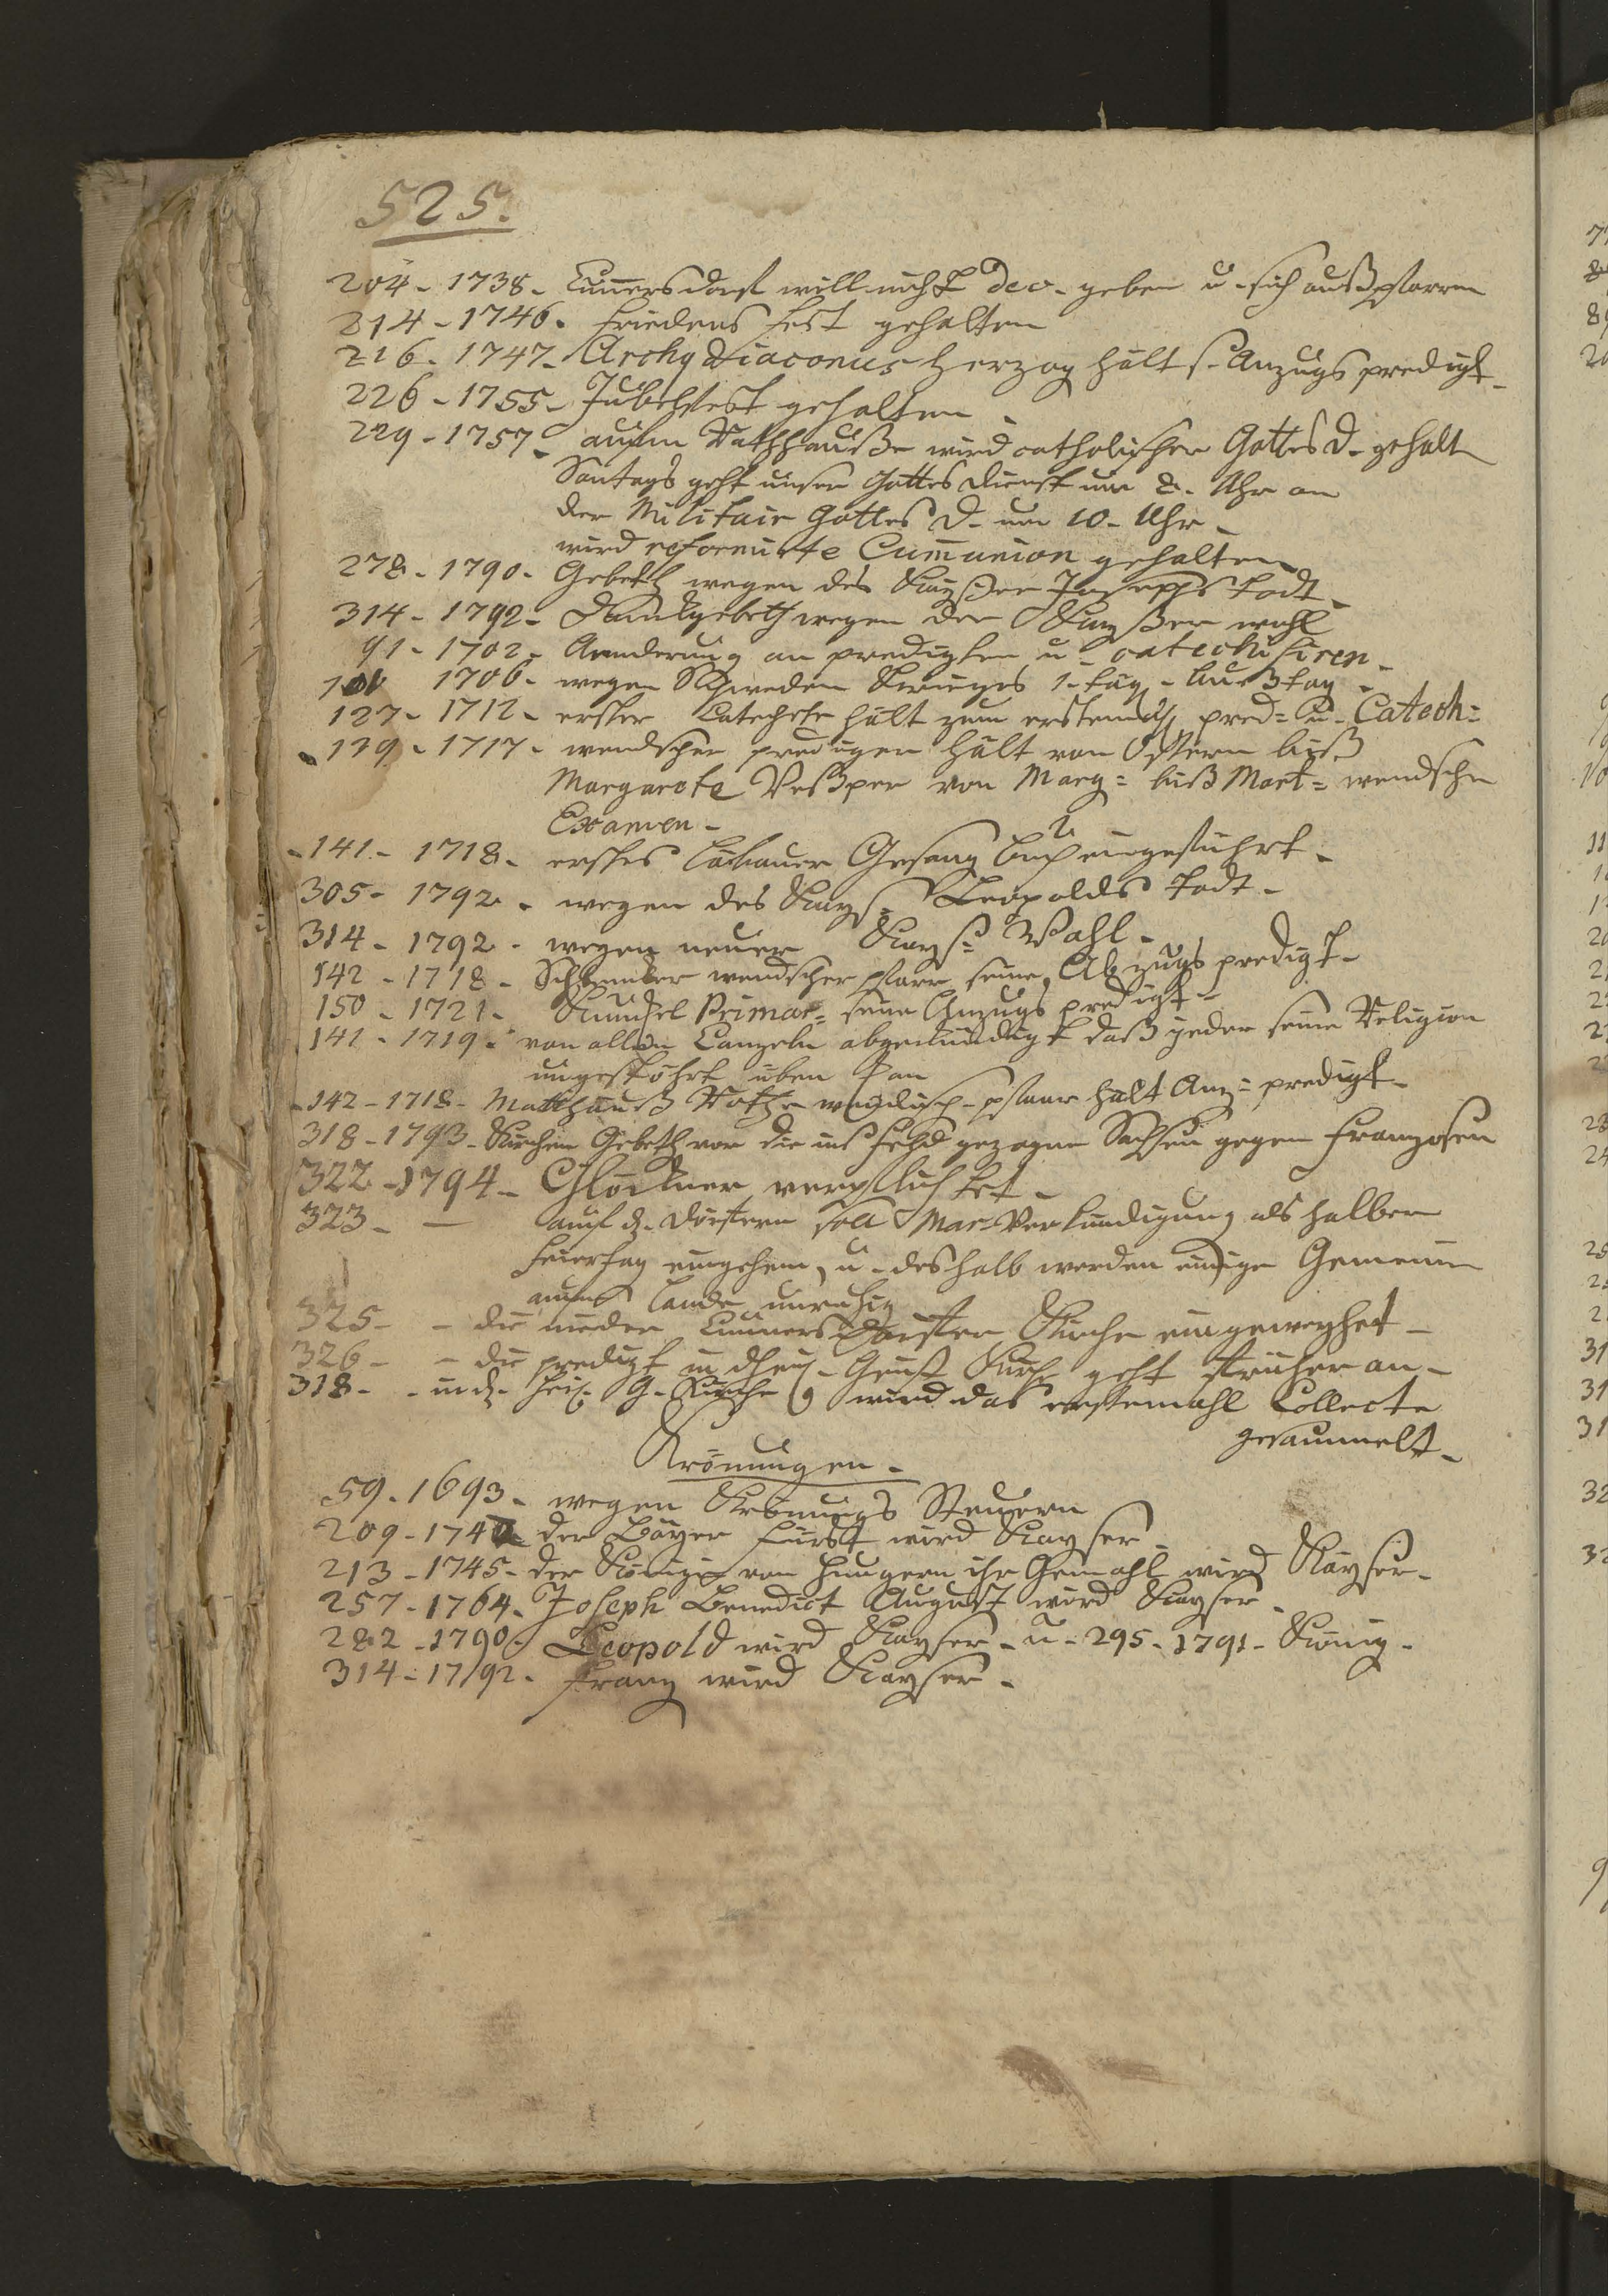 525.
204 - 1738 - Cunnersdorf will nicht Dec - geben u - sich außpfarren
214 - 1746 - Friedens fest gehalten
216 - 1747 - Archydiaconus Herzog hält s - Anzugs predigt -
226 - 1755 - Jubelfest gehalten -
229 - 1757 - aufm Rathhauße wird catholischer Gottes D - gehalt
Sontags geht unser Gottes dienst um 8 - Uhr an
der Militair Gottes D - um 10 - Uhr -
wird reformirte Cummunion gehalten
278 - 1790 - Gebeth wegen des Kayßer Josephs todt -
314 - 1792 - Dankgebeth wegen der Kayßer wahl
91 - 1702 - Aenderung an predigten u - catechisiren -
1706 - wegen Schweden Krieges 1 - täg - Bußtag -
127 - 1712 - erster Catechete hält zum erstenmahl pred = u - Catech =
139 - 1717 - wendscher prediger hält von Ostern biß
Margarete Veßper von Marg = biß Mart = wendsche
Examen -
- 141 - 1718 - erstes Löbauer Gesang buch eingeführt -
305 - 1792 - wegen des Kayß = Leopolds todt -
314 - 1792 - wegen neuer Kayß = Wahl -
142 - 1718 - wendscher pfarr seine Abzugs predigt -
150 - 1721 - Kunckel Primar = seine Anzugs predigt -
141 - 1719 - von allen Canzeln abgekündigt daß jeder seine Religion
ungestöhrt üben kan
- 142 - 1718 - Matthäuß Rothe wendisch - pfaar hält Anz = predigt -
318 - 1793 - Kirchen Gebeth vor die ins Feld gezogne Sachsen gegen Franzosen
322 - 1794 - Glöckner verpflichtet -
323 - — auf d - Dörfern soll Mar - Verkündigung als halber
Feiertag eingehen, u - deshalb werden einige Gemeinen
aufm Lande unruhig
325 - - die nieder Cunnersdorfer Kirche eingeweyhet -
326 - - die predigt in d heil - Geist Kirche geht früher an -
318 - - in d - heil - G - Kirche wird das erstemahl Collecte
gesammelt -
Krönungen -
59 - 1693 - wegen Krönungs Steuern
209 - 1742 der Bäyer Fürst wird Kayser -
213 - 1745 - der Königin von Hungern ihr Gemahl wird Käyser -
257 - 1764 - Joseph Benedict August wird Kayser -
282 - 1790 - Leopold wird Kayser - u - 295 - 1791 - König -
314 - 1792 - Franz wird Kayser -